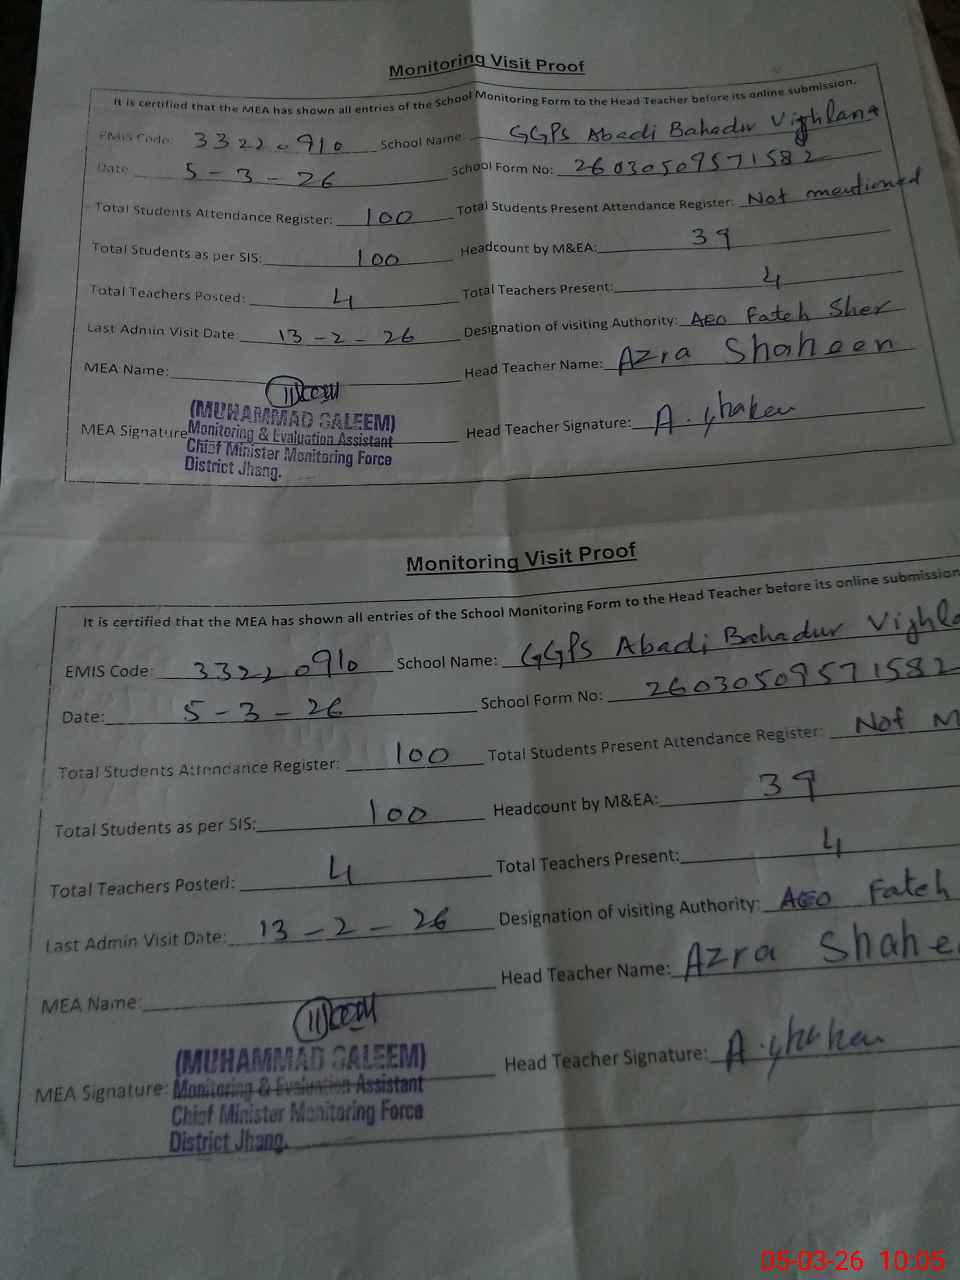 Monitoring Visit Proof
It is certified that the MEA has shown all entries of the School Monitoring Form to the Head Teacher before its online submission.
EMIS Code: 33220910 School Name: GGPS Abadi Bahadur Vighlana
Date: 5-3-26 School Form No: 26030509571582
Total Students Attendance Register: 100 Total Students Present Attendance Register: Not mentioned
Total Students as per SIS: 100 Headcount by M&EA: 39
Total Teachers Posted: 4 Total Teachers Present: 4
Last Admin Visit Date: 13-2-26 Designation of visiting Authority: AEO Fateh Sher
MEA Name: Head Teacher Name: Azra Shaheen
MEA Signature Head Teacher Signature: A. Shaheen
(MUHAMMAD SALEEM)
Monitoring & Evaluation Assistant
Chief Minister Monitoring Force
District Jhang.
Monitoring Visit Proof
It is certified that the MEA has shown all entries of the School Monitoring Form to the Head Teacher before its online submission
EMIS Code: 33220910 School Name: GGPS Abadi Bahadur Vighla
Date: 5-3-26 School Form No: 26030509571582
Total Students Attendance Register: 100 Total Students Present Attendance Register: Not M
Total Students as per SIS: 100 Headcount by M&EA: 39
Total Teachers Posted: 4 Total Teachers Present: 4
Last Admin Visit Date: 13-2-26 Designation of visiting Authority: AEO Fateh
MEA Name: Head Teacher Name: Azra Shahe
MEA Signature: Head Teacher Signature: A. Shaheen
(MUHAMMAD SALEEM)
Monitoring & Evaluation Assistant
Chief Minister Monitoring Force
District Jhang.
05-03-26 10:05